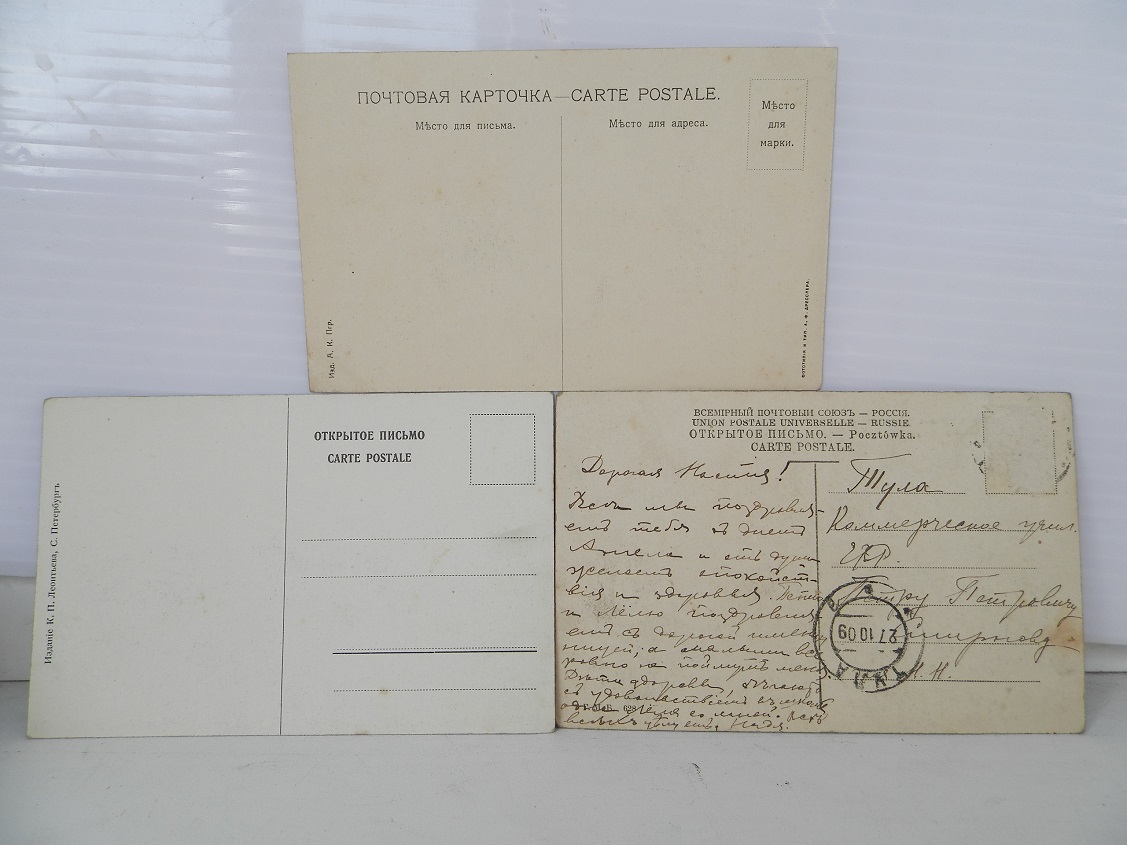 ПОЧТОВАЯ КАРТОЧКА—CARTE POSTALE.
Мѣсто для письма.
Мѣсто для адреса.
Мѣсто
для
марки.
Изд. А. К. Пгр.
ФОТОТИПІЯ И ТИП. А. Ф. ДРЕССЛЕРА.
Изданіе К. П. Леонтьева, С. Петербургъ
ОТКРЫТОЕ ПИСЬМО
CARTE POSTALE
ВСЕМІРНЫЙ ПОЧТОВЫЙ СОЮЗЪ — РОССІЯ.
UNION POSTALE UNIVERSELLE — RUSSIE.
ОТКРЫТОЕ ПИСЬМО. — Pocztówka.
CARTE POSTALE.
Дорогая Настя!
Всѣ мы поздравля-
емъ тебя съ днемъ
Ангела и отъ души
желаемъ спокойст-
вія и здоровья.
и Лёлю поздравля
емъ съ дорогой имен
ницей; а малыши все
равно не поймутъ меня.
Дѣти здоровы, бѣгаютъ
съ удовольствіемъ
цѣлуетъ, Надя.
Тула
Коммерческое учил.
ЕВР.
Петру Петровичу
Смирнову
Н. Н.
ТУЛА
27 10 09